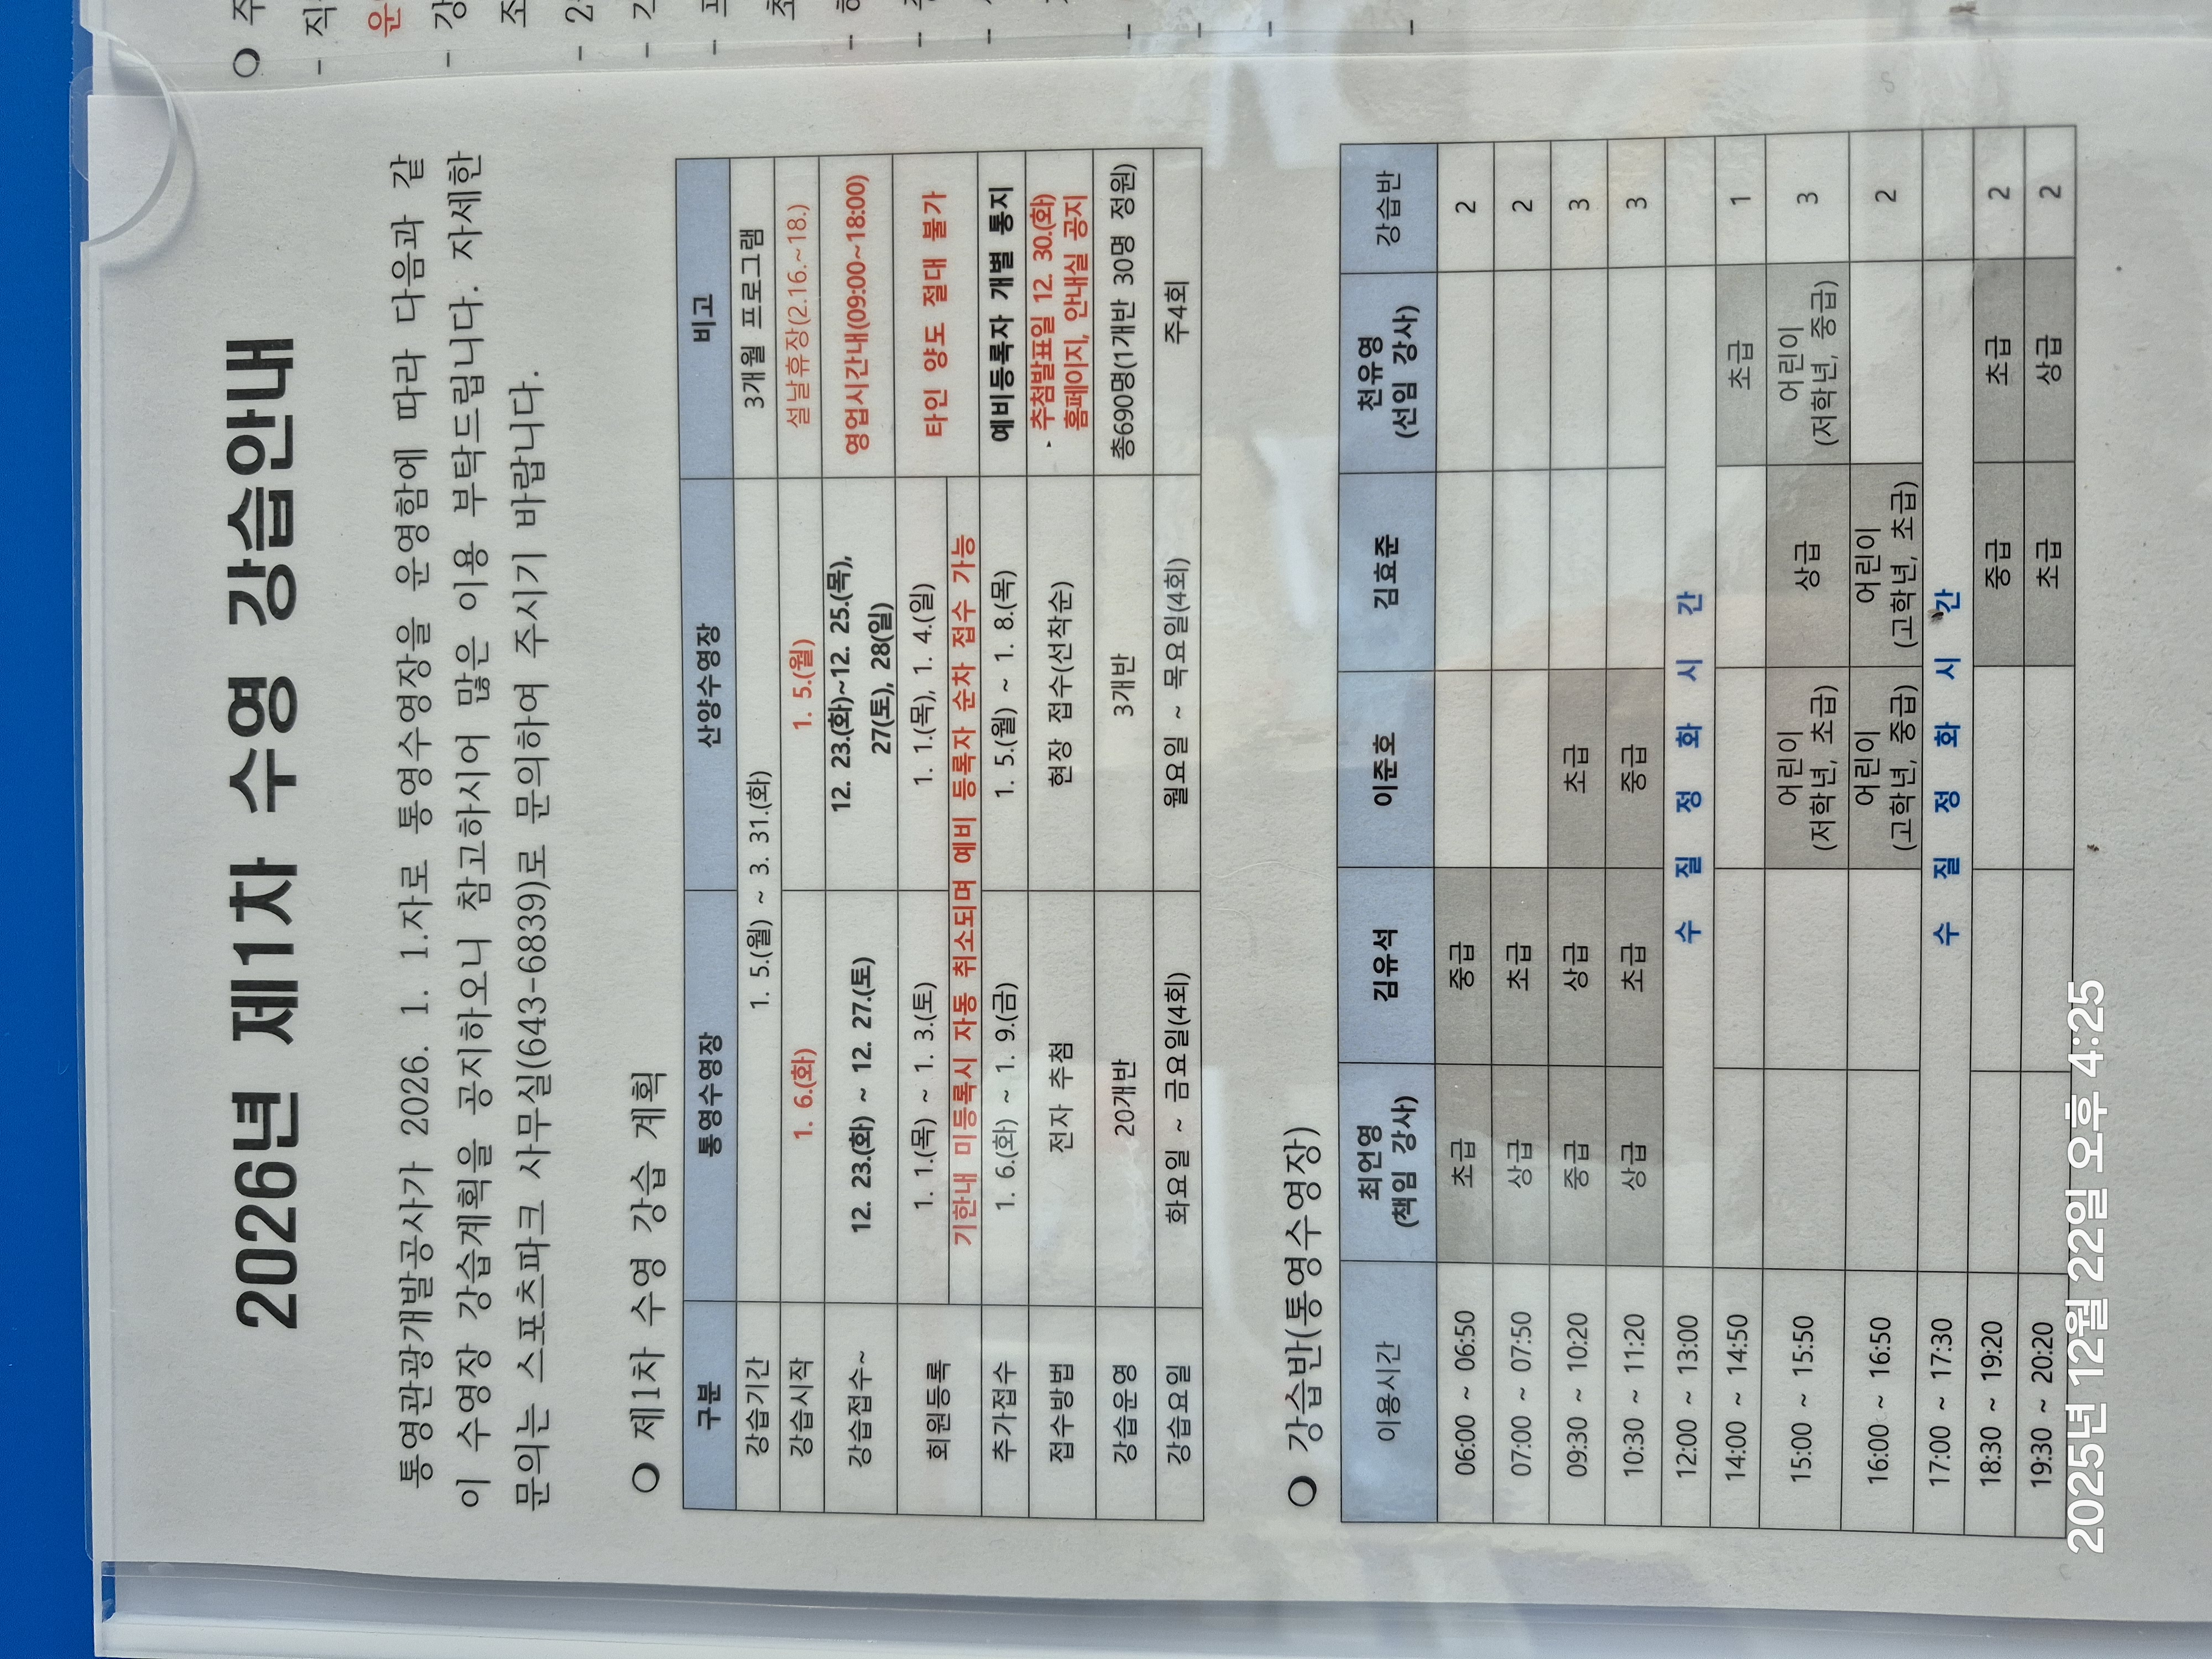 2026년 제1차 수영 강습안내
통영관광개발공사가 2026. 1. 1.자로 통영수영장을 운영함에 따라 다음과 같
이 수영장 강습계획을 공지하오니 참고하시어 많은 이용 부탁드립니다. 자세한
문의는 스포츠파크 사무실(643-6839)로 문의하여 주시기 바랍니다.
○ 제1차 수영 강습 계획
구분 통영수영장 산양수영장 비고
강습기간 1. 5.(월) ~ 3. 31.(화) 3개월 프로그램
강습시작 1. 6.(화) 1. 5.(월) 설날휴장(2.16.~18.)
강습접수~ 12. 23.(화) ~ 12. 27.(토) 12. 23.(화)~12. 25.(목), 영업시간내(09:00~18:00)
27(토), 28(일)
회원등록 1. 1.(목) ~ 1. 3.(토) 1. 1.(목), 1. 4.(일) 타인 양도 절대 불가
기한내 미등록시 자동 취소되며 예비 등록자 순차 접수 가능
추가접수 1. 6.(화) ~ 1. 9.(금) 1. 5.(월) ~ 1. 8.(목) 예비등록자 개별 통지
접수방법 전자 추첨 현장 접수(선착순) 추첨발표일 12. 30.(화)
홈페이지, 안내실 공지
강습운영 20개반 3개반 총690명(1개반 30명 정원)
강습요일 화요일 ~ 금요일(4회) 월요일 ~ 목요일(4회) 주4회
○ 강습반(통영수영장)
이용시간 최언영 김유석 이준호 김효준 천유영 강습반
(책임 강사) (선임 강사)
06:00 ~ 06:50 초급 중급 2
07:00 ~ 07:50 상급 초급 2
09:30 ~ 10:20 중급 상급 초급 3
10:30 ~ 11:20 상급 초급 중급 3
12:00 ~ 13:00 수 질 정 화 시 간
14:00 ~ 14:50 초급 1
15:00 ~ 15:50 어린이 상급 어린이 3
(저학년, 초급) (저학년, 중급)
16:00 ~ 16:50 어린이 어린이 2
(고학년, 중급) (고학년, 초급)
17:00 ~ 17:30 수 질 정 화 시 간
18:30 ~ 19:20 중급 초급 2
19:30 ~ 20:20 초급 상급 2
2025년 12월 22일 오후 4:25